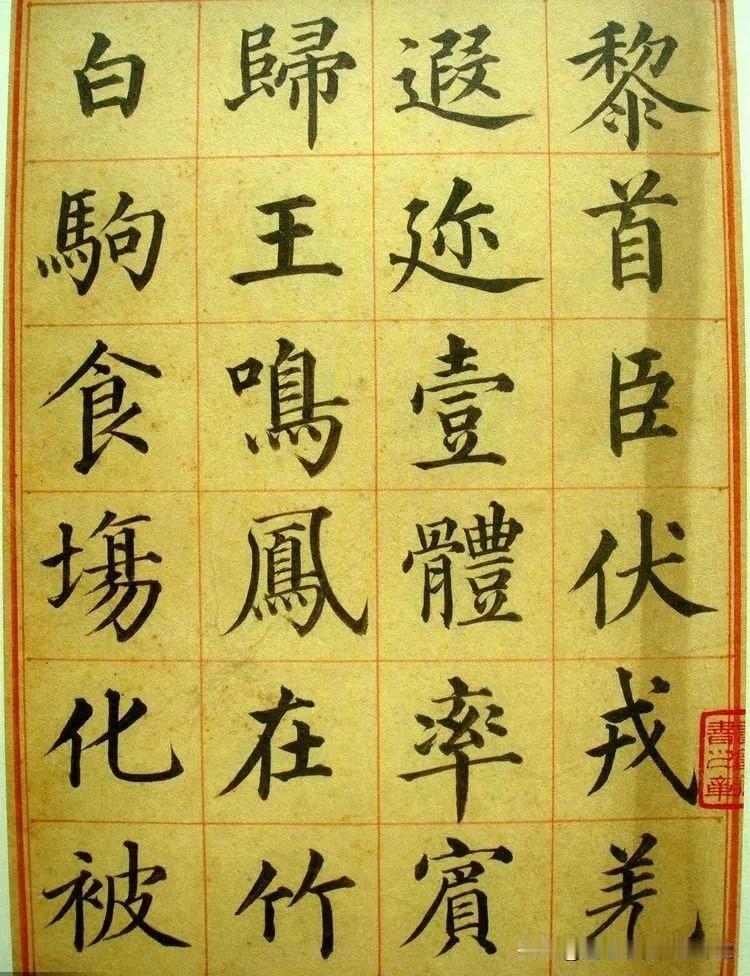 黎首臣伏戎羌
遐迩壹體率賓
歸王鳴鳳在竹
白駒食場化被